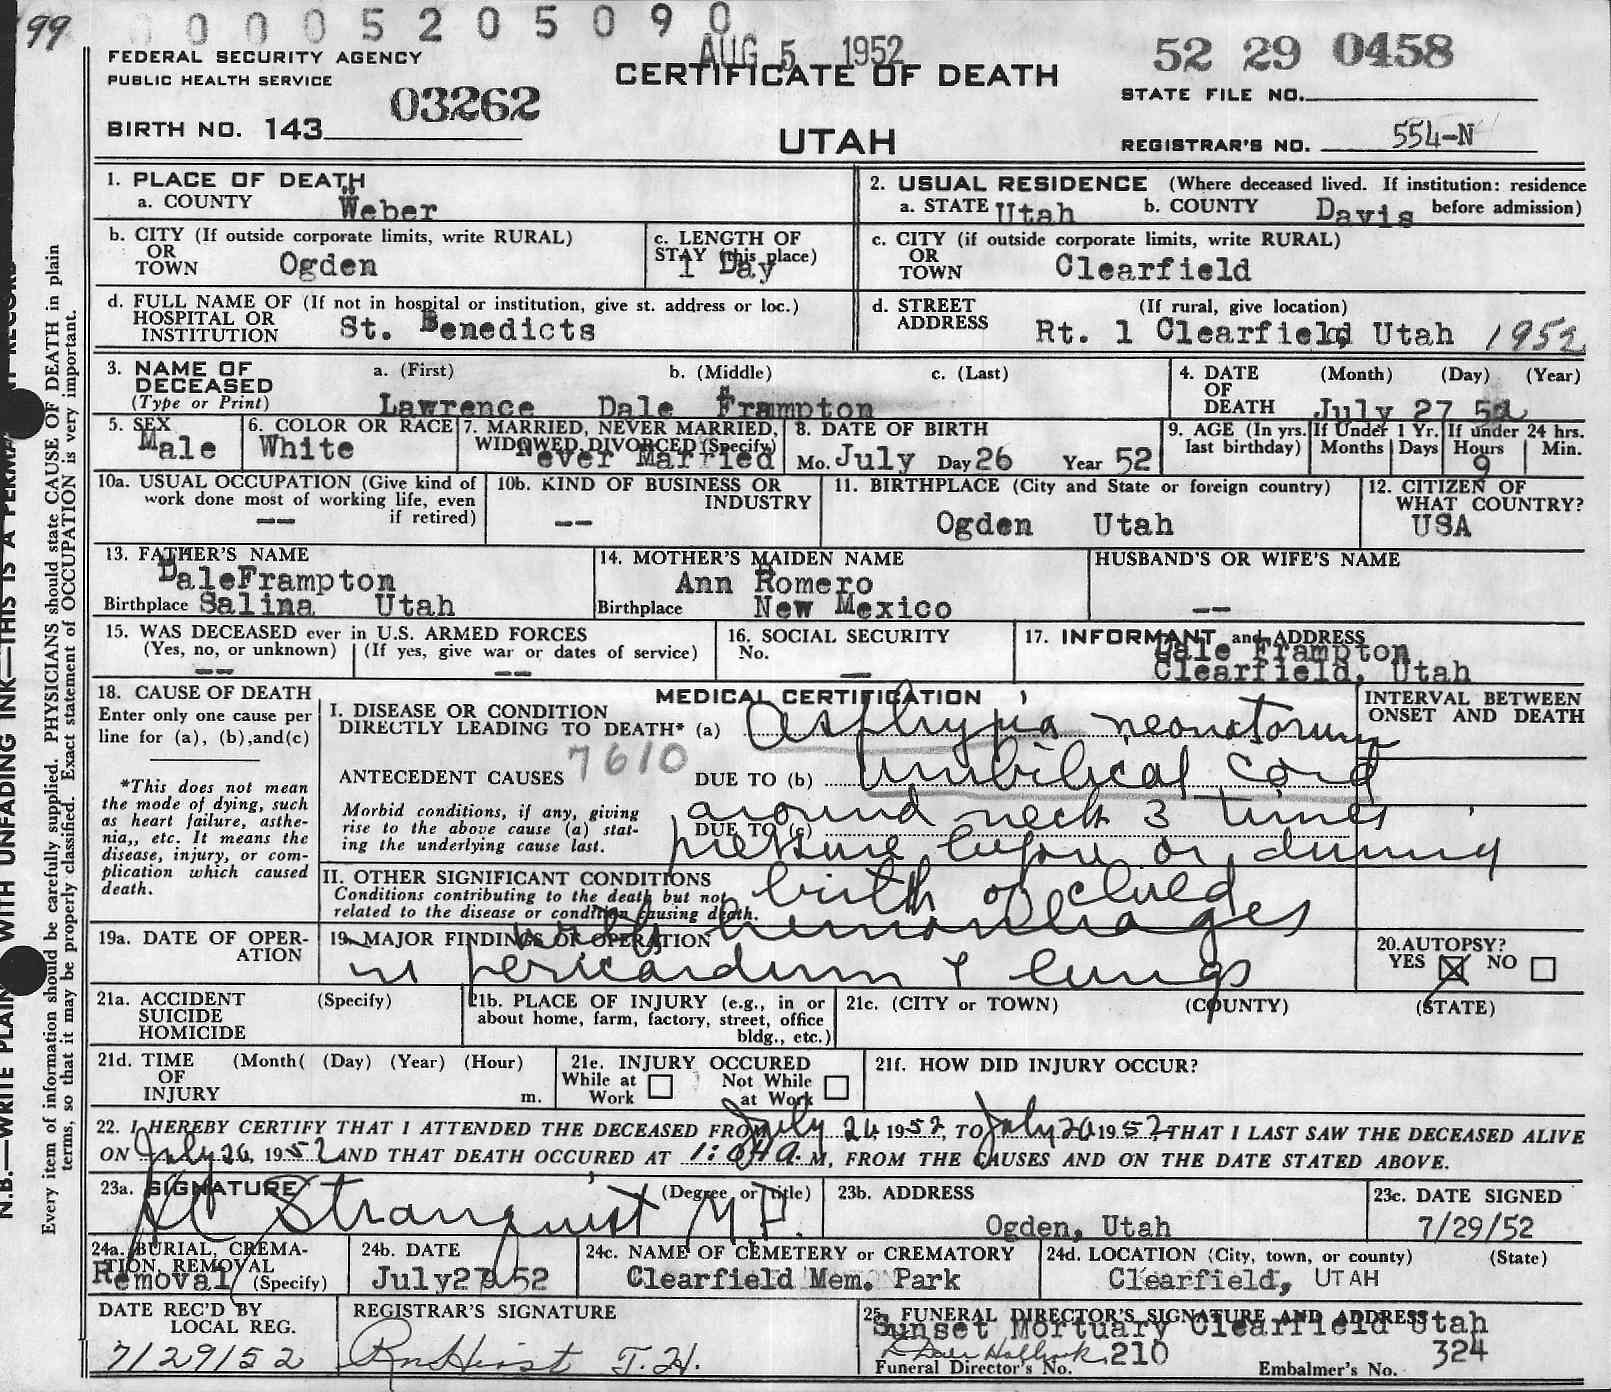 99
0 0 0 5 2 0 5 0 9 0
AUG 5 1952
52 29 0458
FEDERAL SECURITY AGENCY
PUBLIC HEALTH SERVICE
CERTIFICATE OF DEATH
STATE FILE NO.
03262
BIRTH NO. 143
UTAH
REGISTRAR'S NO. 554-N
1. PLACE OF DEATH
a. COUNTY Weber
2. USUAL RESIDENCE (Where deceased lived. If institution: residence before admission)
a. STATE Utah b. COUNTY Davis
b. CITY (If outside corporate limits, write RURAL)
OR
TOWN Ogden
c. LENGTH OF
STAY (this place)
1 Day
c. CITY (if outside corporate limits, write RURAL)
OR
TOWN Clearfield
d. FULL NAME OF (If not in hospital or institution, give st. address or loc.)
HOSPITAL OR
INSTITUTION St. Benedicts
d. STREET (If rural, give location)
ADDRESS Rt. 1 Clearfield, Utah 1952
3. NAME OF a. (First) b. (Middle) c. (Last)
DECEASED
(Type or Print) Lawrence Dale Frampton
4. DATE (Month) (Day) (Year)
OF
DEATH July 27 52
5. SEX
Male
6. COLOR OR RACE
White
7. MARRIED, NEVER MARRIED,
WIDOWED, DIVORCED (Specify)
Never Married
8. DATE OF BIRTH
Mo. July Day 26 Year 52
9. AGE (In yrs. last birthday)
If Under 1 Yr.
Months Days
If under 24 hrs.
Hours Min.
9
10a. USUAL OCCUPATION (Give kind of
work done most of working life, even
if retired)
--
10b. KIND OF BUSINESS OR
INDUSTRY
--
11. BIRTHPLACE (City and State or foreign country)
Ogden Utah
12. CITIZEN OF
WHAT COUNTRY?
USA
13. FATHER'S NAME
DaleFrampton
Birthplace Salina Utah
14. MOTHER'S MAIDEN NAME
Ann Romero
Birthplace New Mexico
HUSBAND'S OR WIFE'S NAME
--
15. WAS DECEASED ever in U.S. ARMED FORCES
(Yes, no, or unknown) (If yes, give war or dates of service)
-- --
16. SOCIAL SECURITY
No.
—
17. INFORMANT and ADDRESS
Dale Frampton
Clearfield, Utah
18. CAUSE OF DEATH
Enter only one cause per
line for (a), (b),and(c)
*This does not mean
the mode of dying, such
as heart failure, asthe-
nia,, etc. It means the
disease, injury, or com-
plication which caused
death.
MEDICAL CERTIFICATION
INTERVAL BETWEEN
ONSET AND DEATH
I. DISEASE OR CONDITION
DIRECTLY LEADING TO DEATH* (a) Asphyxia neonatorum
7610
ANTECEDENT CAUSES DUE TO (b) umbilical cord
Morbid conditions, if any, giving
rise to the above cause (a) stat-
ing the underlying cause last.
around neck 3 times
DUE TO (c)
pressure before or during
II. OTHER SIGNIFICANT CONDITIONS
Conditions contributing to the death but not
related to the disease or condition causing death.
birth of child
with hemorrhages
19a. DATE OF OPER-
ATION
19. MAJOR FINDINGS OF OPERATION
in pericardium & lungs
20.AUTOPSY?
YES X NO
21a. ACCIDENT (Specify)
SUICIDE
HOMICIDE
21b. PLACE OF INJURY (e.g., in or
about home, farm, factory, street, office
bldg., etc.)
21c. (CITY or TOWN) (COUNTY) (STATE)
21d. TIME (Month( (Day) (Year) (Hour)
OF
INJURY m.
21e. INJURY OCCURED
While at Work Not While at Work
21f. HOW DID INJURY OCCUR?
22. I HEREBY CERTIFY THAT I ATTENDED THE DECEASED FROM July 26, 1952, TO July 26 1952, THAT I LAST SAW THE DECEASED ALIVE
ON July 26, 1952 AND THAT DEATH OCCURED AT 1:04 A.M, FROM THE CAUSES AND ON THE DATE STATED ABOVE.
23a. SIGNATURE (Degree or title)
Stranquist M.D.
23b. ADDRESS
Ogden, Utah
23c. DATE SIGNED
7/29/52
24a. BURIAL, CREMA-
TION, REMOVAL
Removal (Specify)
24b. DATE
July 29 52
24c. NAME OF CEMETERY or CREMATORY
Clearfield Mem. Park
24d. LOCATION (City, town, or county) (State)
Clearfield, UTAH
DATE REC'D BY
LOCAL REG.
7/29/52
REGISTRAR'S SIGNATURE
25. FUNERAL DIRECTOR'S SIGNATURE AND ADDRESS
Sunset Mortuary Clearfield Utah
Funeral Director's No. 210
Embalmer's No. 324
N.B.—WRITE PLAIN WITH UNFADING INK—THIS IS A PERMA
Every item of information should be carefully supplied. PHYSICIANS should state CAUSE OF DEATH in plain
terms, so that it may be properly classified. Exact statement of OCCUPATION is very important.